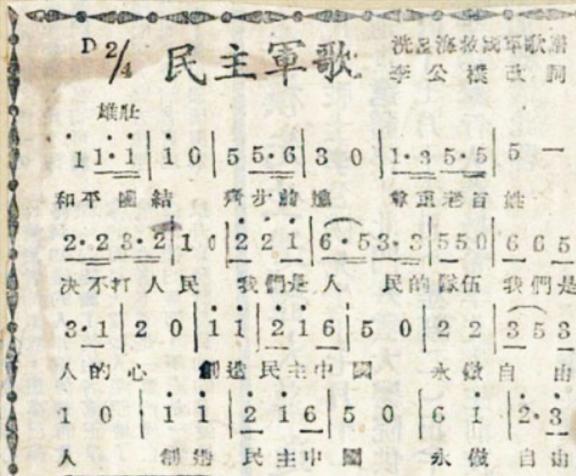 D 2/4 民主軍歌
冼星海救國軍歌譜
李公樸改詞
雄壯
1 1·1 | 1 0 | 5 5·6 | 3 0 | 1·3 5·5 | 5 —
和平團結 齊步前進 尊重老百姓
2·2 3·2 | 1 0 | 2 2 1 | 6·5 3·3 | 5 5 0 | 6 6 5
决不打人民 我們是人 民的隊伍 我們是
3·1 | 2 0 | 1 1 | 2 1 6 | 5 0 | 2 2 | 3 5 3
人的心 創造民主中國 永做自由
1 0 | 1 1 | 2 1 6 | 5 0 | 6 1 | 2·3
人 創造民主中國 永做自由